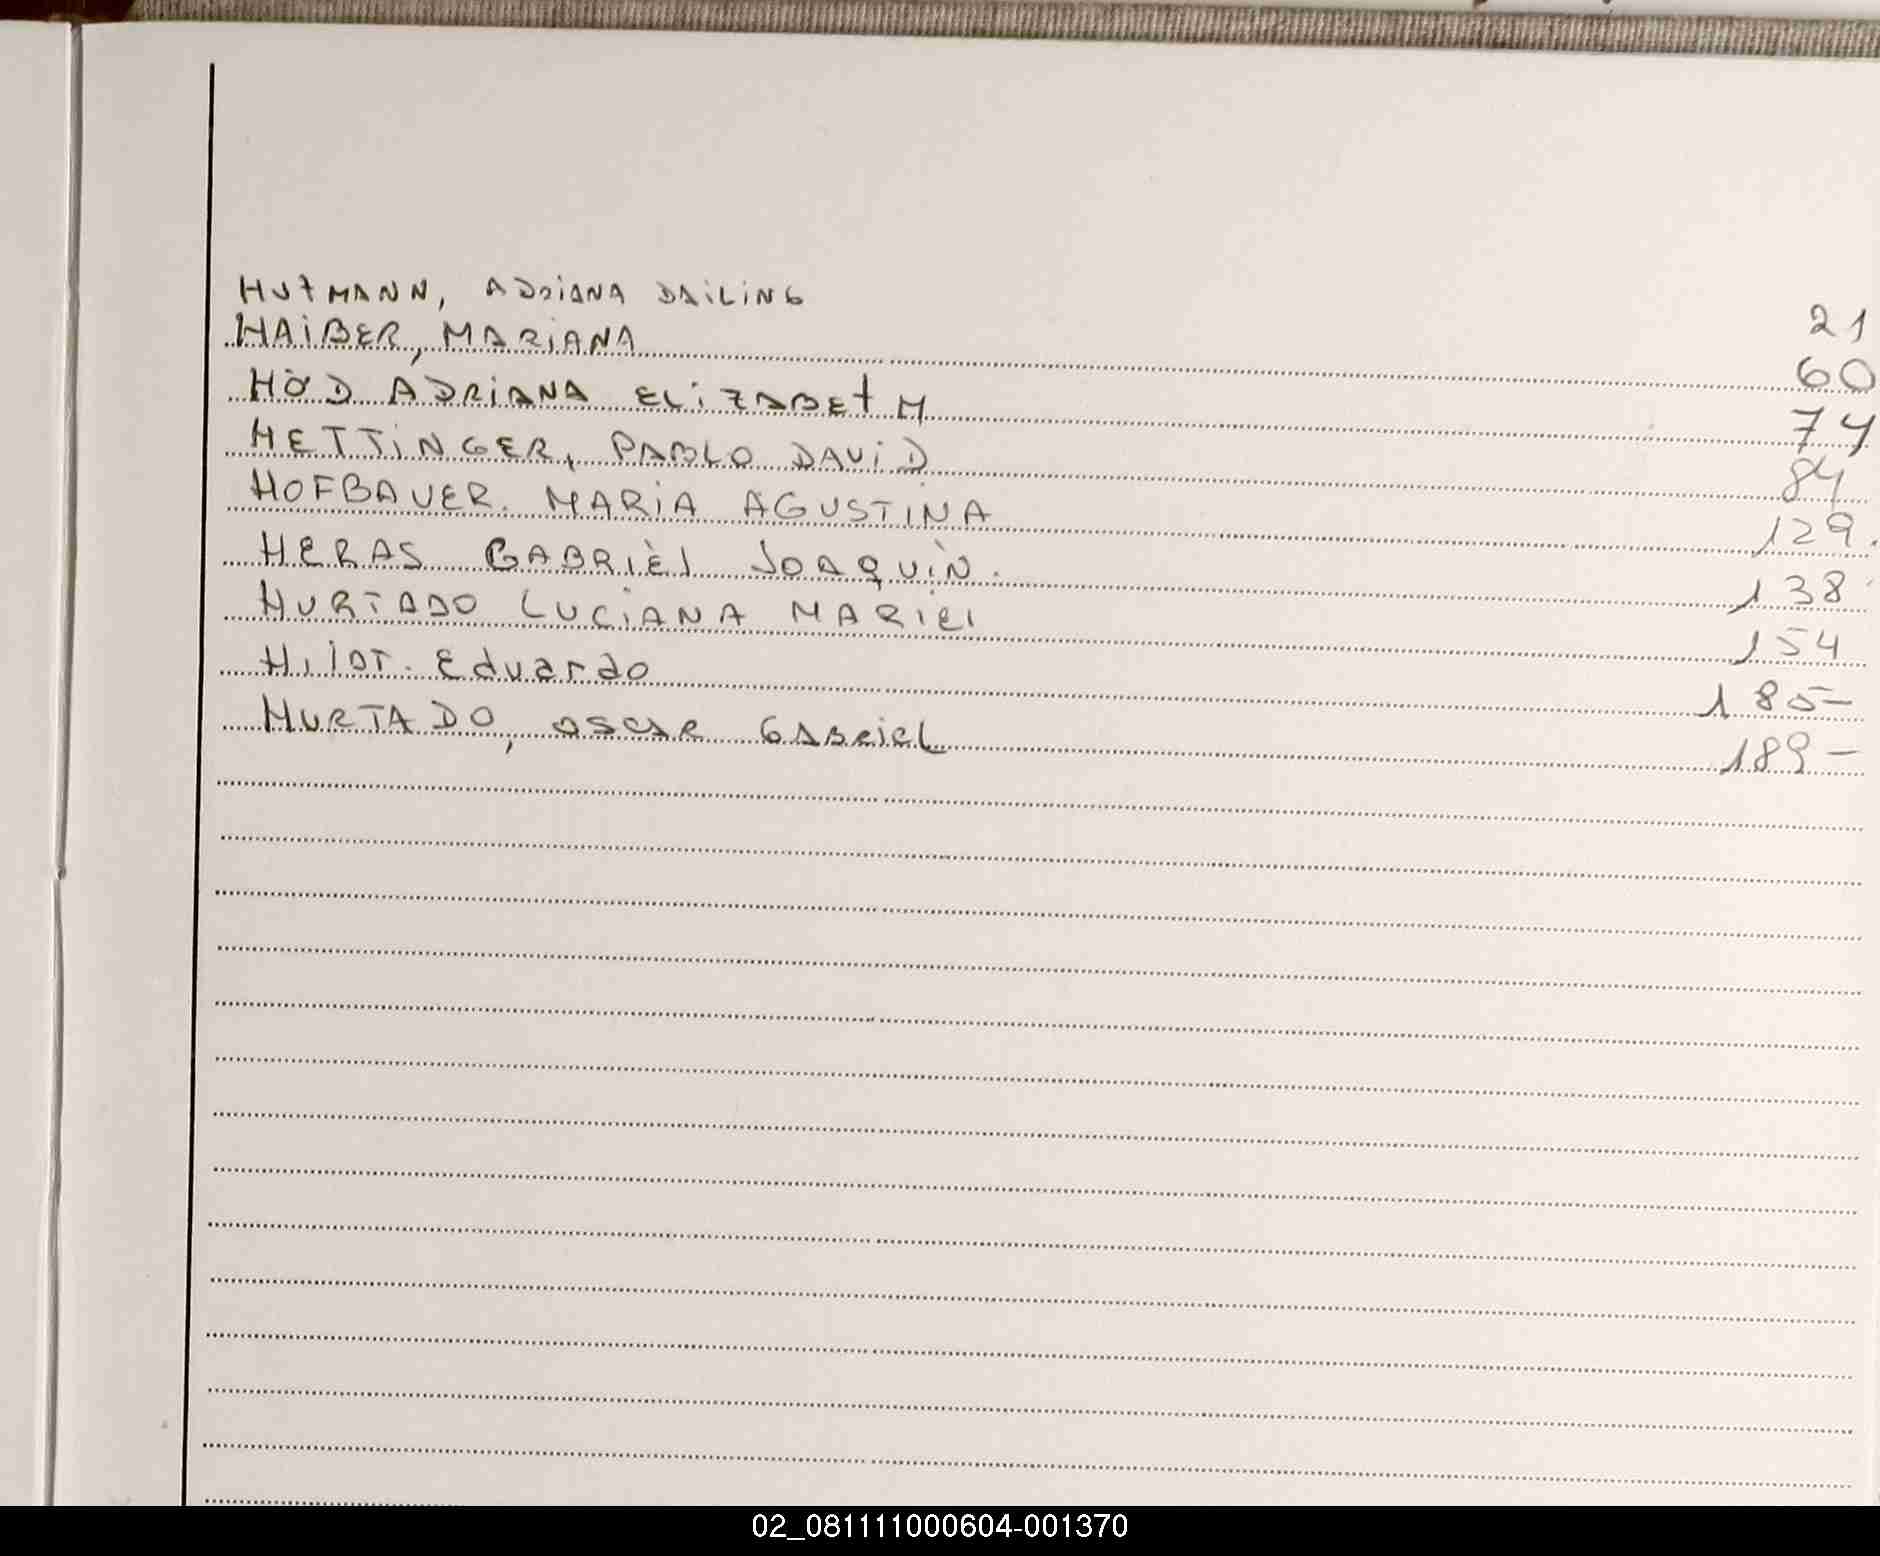 HUTMANN, ADRIANA DAILING 21
HAIBER, MARIANA 60
HÖD ADRIANA ELIZABETH 74
HETTINGER, PABLO DAVID 84
HOFBAUER. MARIA AGUSTINA 129.
HERAS GABRIÈL JOAQUÌN. 138
HURTADO LUCIANA MARIEL 154
Eduardo 185-
HURTADO, OSCAR GABRIEL 189-
02_081111000604-001370